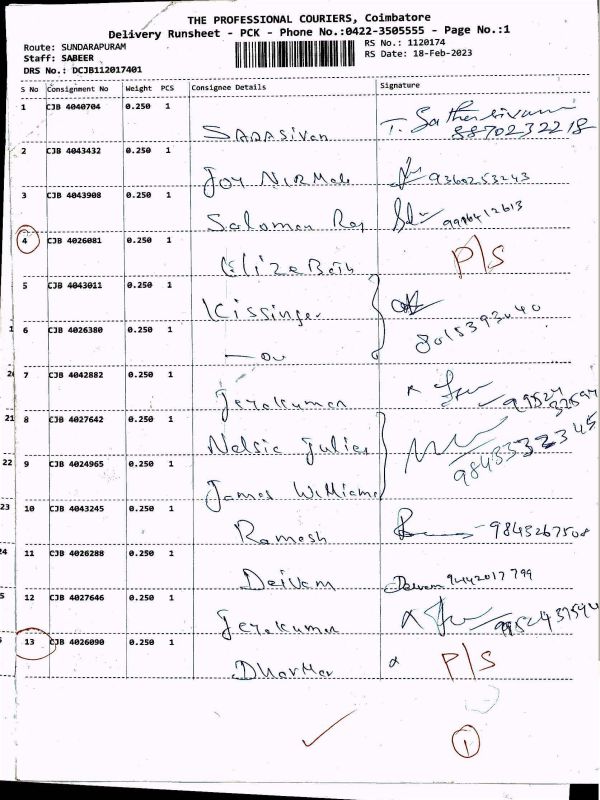 THE PROFESSIONAL COURIERS, Coimbatore
Delivery Runsheet - PCK - Phone No.:0422-3505555 - Page No.:1
Route: SUNDARAPURAM
RS No.: 1120174
Staff: SABEER
RS Date: 18-Feb-2023
DRS No.: DCJB112017401
S No Consignment No Weight PCS Consignee Details Signature
1 CJB 4040704 0.250 1
SADASivan T. Sathasivam
8870232218
2 CJB 4043432 0.250 1
Joy NIRMala 9360253243
3 CJB 4043908 0.250 1
Salomon Raj
4 CJB 4026081 0.250 1
ElizeBeth P/S
5 CJB 4043011 0.250 1
Kissinger
6 CJB 4026380 0.250 1
8015393040
7 CJB 4042882 0.250 1
Jerakumar
8 CJB 4027642 0.250 1
Nelsic Julies
9843332345
9 CJB 4024965 0.250 1
James William
10 CJB 4043245 0.250 1
Ramesh 9843267508
11 CJB 4026288 0.250 1
Deivam Deivam 9442017799
12 CJB 4027646 0.250 1
Jerakumar
13 CJB 4026090 0.250 1
Dharmar P/S
1